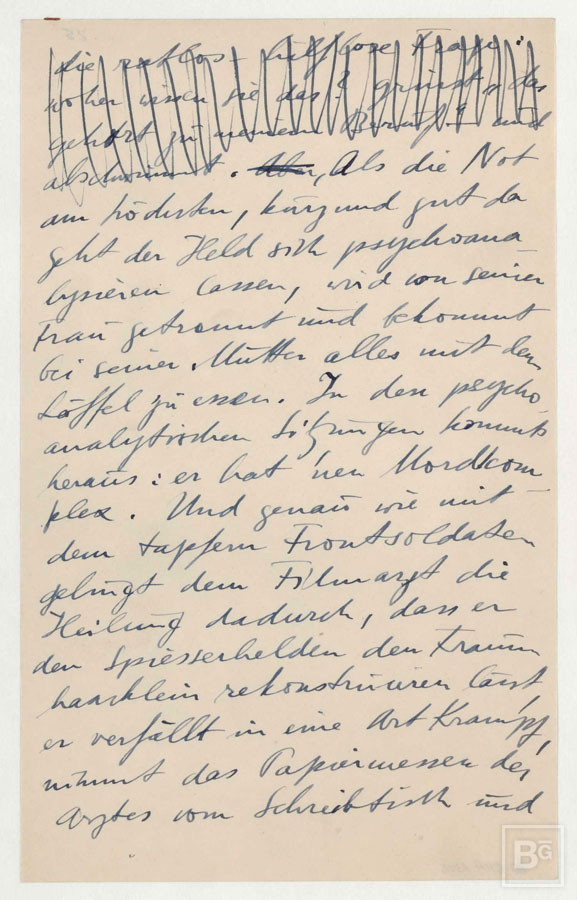 die ratlos-hilflose Frage:
woher wissen sie das? grinst, das
gehört zu meinem Beruf! und
abschwimmt. Aber, Als die Not
am höchsten, kurz und gut da
geht der Held sich psychoana
lysieren lassen, wird von seiner
Frau getrennt und bekommt
bei seiner Mutter alles mit dem
Löffel zu essen. In den psycho
analytischen Sitzungen kommts
heraus: er hat 'nen Mordkom
plex. Und genau wie mit
dem tapfern Frontsoldaten
gelingt dem Filmarzt die
Heilung dadurch, dass er
den Spiesserhelden den Traum
haarklein rekonstruieren lässt,
er verfällt in eine Art Krampf,
nimmt das Papiermesser des
Arztes vom Schreibtisch und
BG